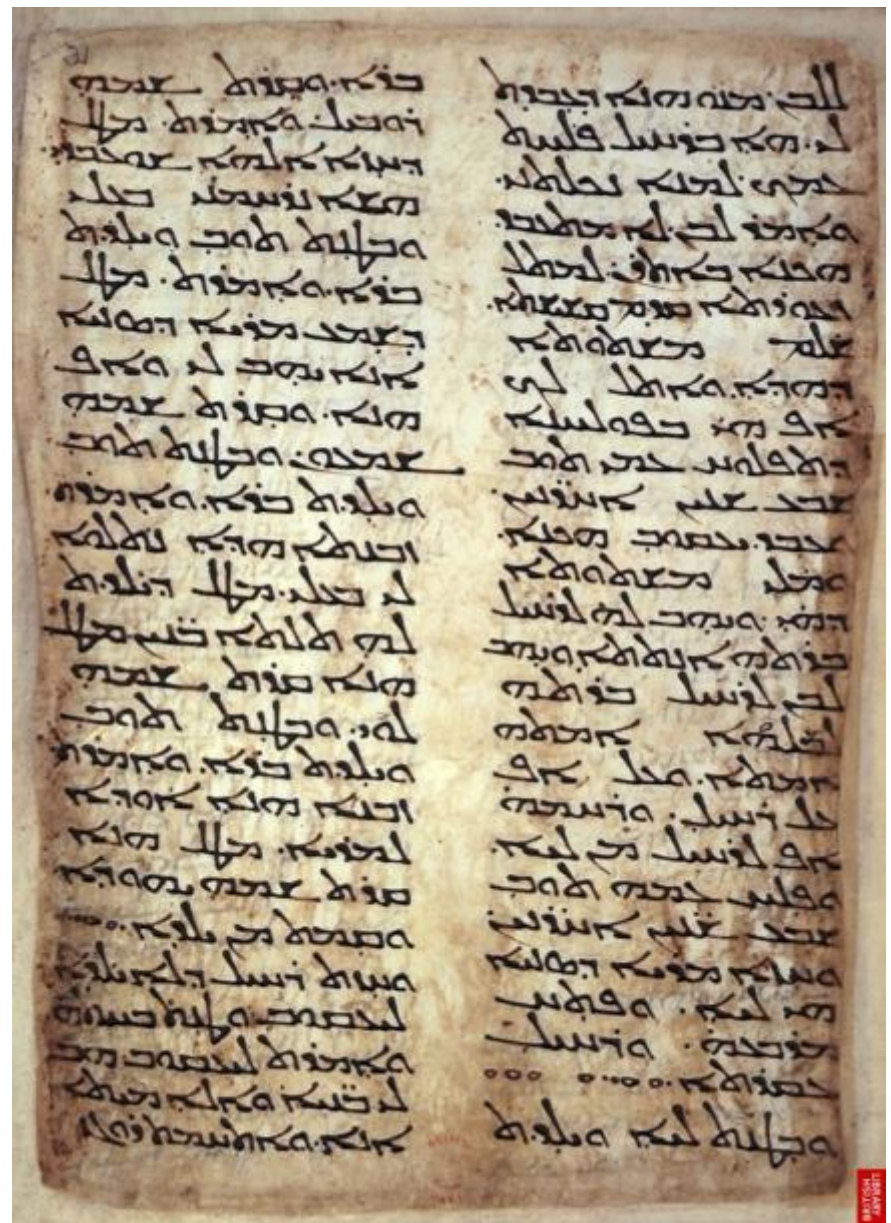 ܠܠܒܢ. ܡܢܘ ܗܢܐ ܕܥܒܕܬ
ܠܝ. ܗܐ ܒܪܚܝܠ ܦܠܚܬ
ܥܡܟ. ܠܡܢܐ ܢܟܠܬܢܝ.
ܘܐܡܪ ܠܒܢ. ܠܐ ܡܬܥܒܕ
ܗܟܢܐ ܒܐܬܪܢ. ܠܡܬܠ
ܙܥܘܪܬܐ ܩܕܡ ܩܫܝܫܬܐ.
ܫܠܡ ܡܫܬܘܬܐ
ܕܗܕܐ. ܘܐܬܠ ܠܟ
ܐܦ ܗܝ ܒܦܘܠܚܢܐ
ܕܬܦܠܘܚ ܥܡܝ ܬܘܒ
ܫܒܥ ܫܢܝ̈ܢ ܐܚܪ̈ܢܝܢ.
ܥܒܕ ܝܥܩܘܒ ܗܟܢܐ.
ܡܫܬܘܬܐ
ܘܝܗܒ ܠܗ ܠܪܚܝܠ
ܒܪܬܗ ܐܢܬܬܐ. ܘܝܗܒ
ܠܒܢ ܠܪܚܝܠ ܒܪܬܗ
ܠܒܠܗܐ ܐܡܬܗ
ܐܡܬܐ. ܘܥܠ ܐܦ
ܥܠ ܪܚܝܠ. ܘܪܚܡܗ
ܐܦ ܠܪܚܝܠ ܡܢ ܠܝܐ.
ܘܦܠܚ ܥܡܗ ܬܘܒ
ܫܒܥ ܫܢܝ̈ܢ ܐܚܪ̈ܢܝܢ
ܘܚܙܐ ܡܪܝܐ ܕܣܢܝܐ
ܗܝ ܠܝܐ. ܘܦܬܚ
ܡܪܒܥܗ. ܘܪܚܝܠ
ܥܩܪܬܐ
ܘܒܛܢܬ ܠܝܐ ܘܝܠܕܬ
ܒܪܐ. ܘܩܪܬ ܫܡܗ
ܪܘܒܝܠ. ܘܐܡܪܬ. ܡܛܠ
ܕܚܙܐ ܐܠܗܐ ܫܘܥܒܕܝ.
ܗܫܐ ܢܪܚܡܢܝ ܒܥܠܝ
ܘܒܛܢܬ ܬܘܒ ܘܝܠܕܬ
ܒܪܐ. ܘܐܡܪܬ. ܡܛܠ
ܕܫܡܥ ܡܪܝܐ ܕܣܢܝܐ
ܐܢܐ ܝܗܒ ܠܝ ܘܐܦ
ܗܢܐ. ܘܩܪܬ ܫܡܗ
ܫܡܥܘܢ. ܘܒܛܢܬ ܬܘܒ
ܘܝܠܕܬ ܒܪܐ. ܘܐܡܪܬ
ܙܒܢܬܐ ܗܕܐ ܢܬܠܘܐ
ܠܝ ܒܥܠܝ. ܡܛܠ ܕܝܠܕܬ
ܠܗ ܬܠܬܐ ܒܢ̈ܝܢ ܡܛܠ
ܗܢܐ ܩܪܬ ܫܡܗ
ܠܘܝ. ܘܒܛܢܬ ܬܘܒ
ܘܝܠܕܬ ܒܪܐ. ܘܐܡܪܬ
ܙܒܢܐ ܗܢܐ ܐܘܕܐ
ܠܡܪܝܐ. ܡܛܠ ܗܢܐ
ܩܪܬ ܫܡܗ ܝܗܘܕܐ
ܘܩܡܬ ܡܢ ܝܠܕܐ
ܘܚܙܬ ܪܚܝܠ ܕܠܐ ܝܠܕܐ
ܠܝܥܩܘܒ. ܘܛܢܬ ܒܚܬܗ
ܘܐܡܪܬ ܠܝܥܩܘܒ ܗܒ
ܠܝ ܒܢ̈ܝܐ ܘܐܠܐ ܡܝܬܐ
ܐܢܐ.
BRITISH
LIBRARY